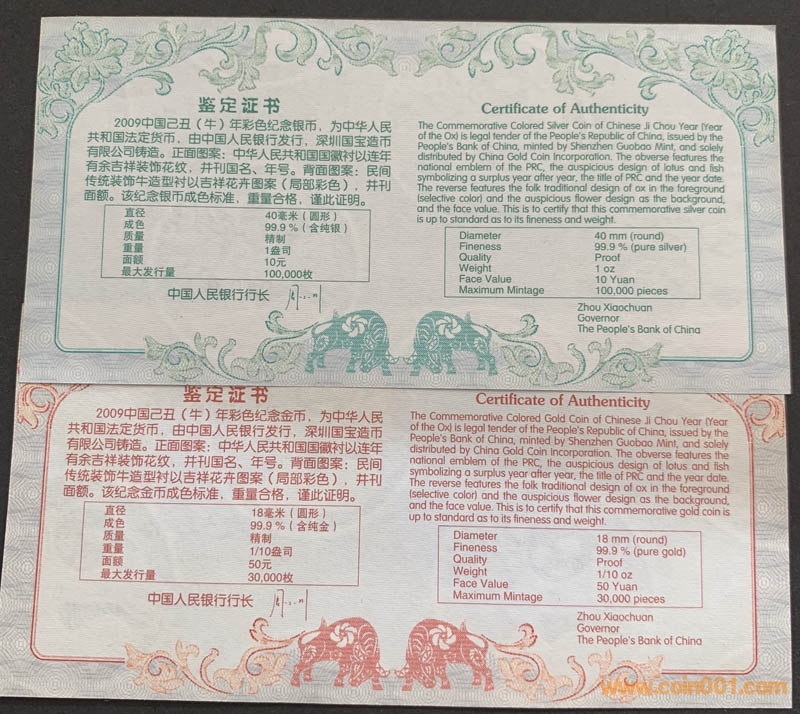 鉴定证书
2009中国己丑（牛）年彩色纪念银币，为中华人民
共和国法定货币，由中国人民银行发行，深圳国宝造币
有限公司铸造。正面图案：中华人民共和国国徽衬以连年
有余吉祥装饰花纹，并刊国名、年号。背面图案：民间
传统装饰牛造型衬以吉祥花卉图案（局部彩色），并刊
面额。该纪念银币成色标准，重量合格，谨此证明。
直径 40毫米（圆形）
成色 99.9％（含纯银）
质量 精制
重量 1盎司
面额 10元
最大发行量 100,000枚
中国人民银行行长
Certificate of Authenticity
The Commemorative Colored Silver Coin of Chinese Ji Chou Year (Year
of the Ox) is legal tender of the People's Republic of China, issued by the
People's Bank of China, minted by Shenzhen Guobao Mint, and solely
distributed by China Gold Coin Incorporation. The obverse features the
national emblem of the PRC, the auspicious design of lotus and fish
symbolizing a surplus year after year, the title of PRC and the year date.
The reverse features the folk traditional design of ox in the foreground
(selective color) and the auspicious flower design as the background,
and the face value. This is to certify that this commemorative silver coin
is up to standard as to its fineness and weight.
Diameter 40 mm (round)
Fineness 99.9 % (pure silver)
Quality Proof
Weight 1 oz
Face Value 10 Yuan
Maximum Mintage 100,000 pieces
Zhou Xiaochuan
Governor
The People's Bank of China
鉴定证书
2009中国己丑（牛）年彩色纪念金币，为中华人民
共和国法定货币，由中国人民银行发行，深圳国宝造币
有限公司铸造。正面图案：中华人民共和国国徽衬以连年
有余吉祥装饰花纹，并刊国名、年号。背面图案：民间
传统装饰牛造型衬以吉祥花卉图案（局部彩色），并刊
面额。该纪念金币成色标准，重量合格，谨此证明。
直径 18毫米（圆形）
成色 99.9％（含纯金）
质量 精制
重量 1/10盎司
面额 50元
最大发行量 30,000枚
中国人民银行行长
Certificate of Authenticity
The Commemorative Colored Gold Coin of Chinese Ji Chou Year (Year
of the Ox) is legal tender of the People's Republic of China, issued by the
People's Bank of China, minted by Shenzhen Guobao Mint, and solely
distributed by China Gold Coin Incorporation. The obverse features the
national emblem of the PRC, the auspicious design of lotus and fish
symbolizing a surplus year after year, the title of PRC and the year date.
The reverse features the folk traditional design of ox in the foreground
(selective color) and the auspicious flower design as the background,
and the face value. This is to certify that this commemorative gold coin is
up to standard as to its fineness and weight.
Diameter 18 mm (round)
Fineness 99.9 % (pure gold)
Quality Proof
Weight 1/10 oz
Face Value 50 Yuan
Maximum Mintage 30,000 pieces
Zhou Xiaochuan
Governor
The People's Bank of China
www.coin001.com